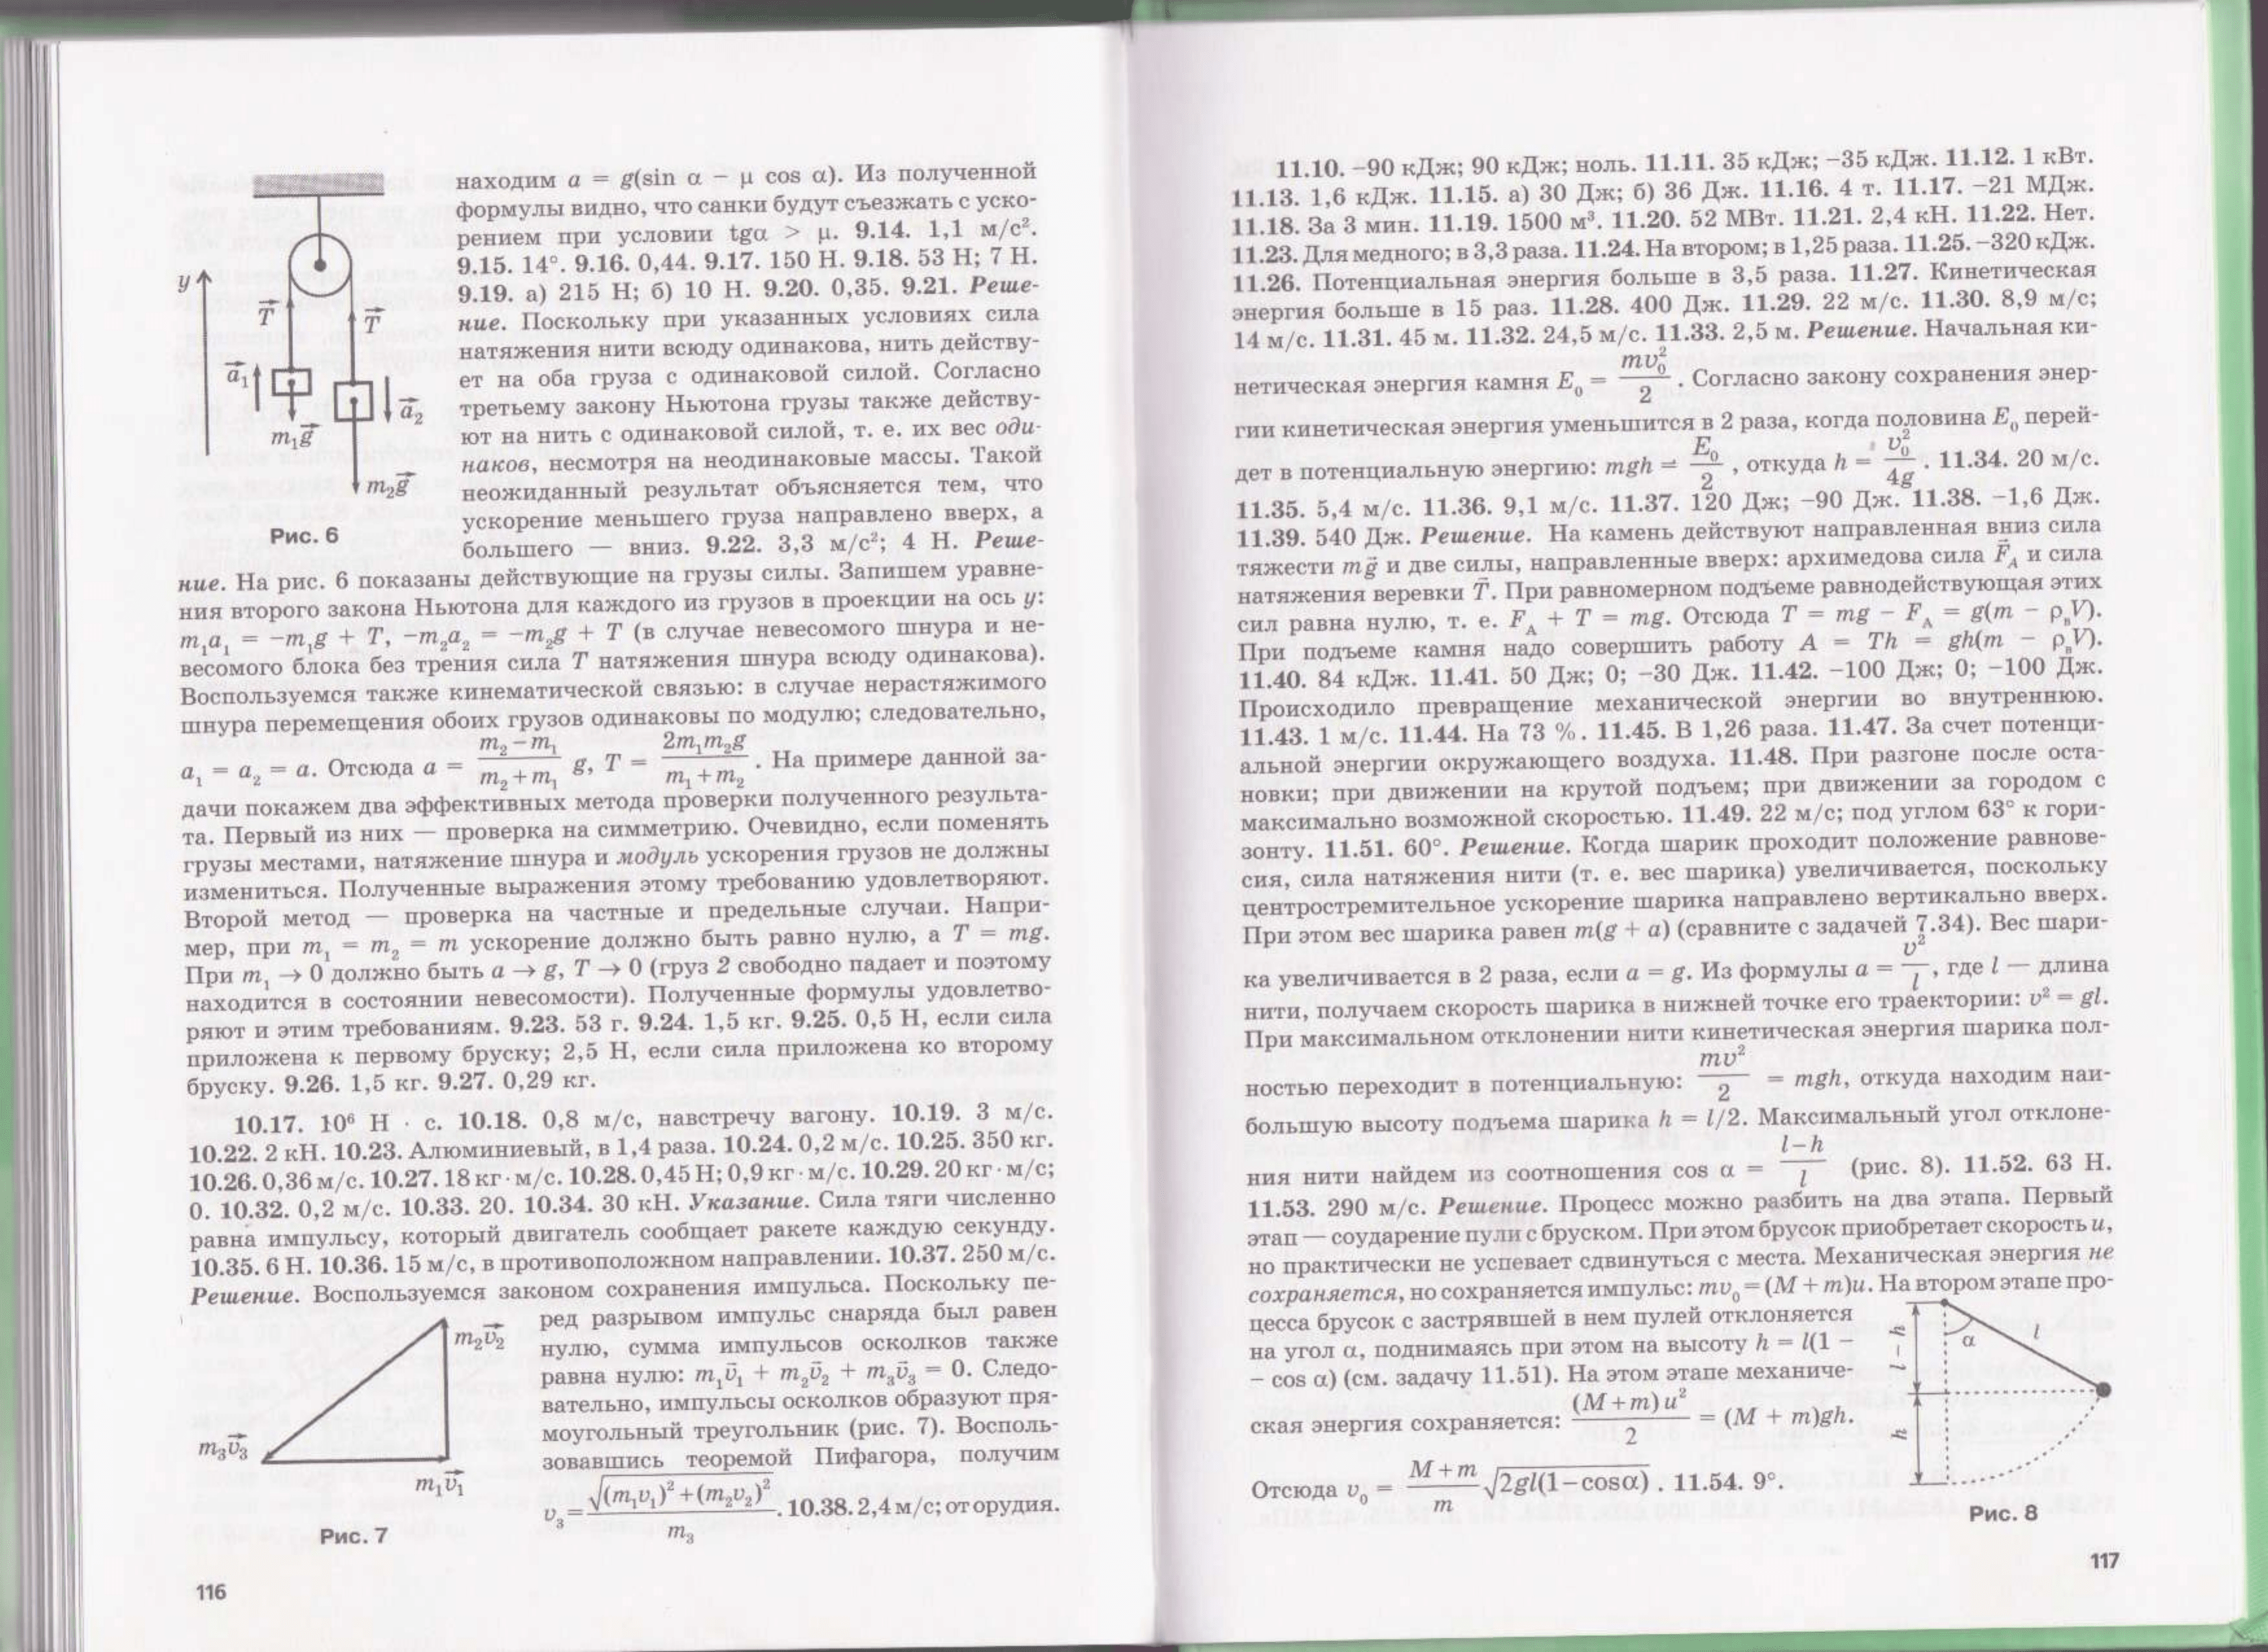 y
T
T
a₁
a₂
m₁g
m₂g
Рис. 6
находим a = g(sin α − μ cos α). Из полученной
формулы видно, что санки будут съезжать с уско-
рением при условии tgα > μ. 9.14. 1,1 м/с².
9.15. 14°. 9.16. 0,44. 9.17. 150 Н. 9.18. 53 Н; 7 Н.
9.19. а) 215 Н; б) 10 Н. 9.20. 0,35. 9.21. Реше-
ние. Поскольку при указанных условиях сила
натяжения нити всюду одинакова, нить действу-
ет на оба груза с одинаковой силой. Согласно
третьему закону Ньютона грузы также действу-
ют на нить с одинаковой силой, т. е. их вес оди-
наков, несмотря на неодинаковые массы. Такой
неожиданный результат объясняется тем, что
ускорение меньшего груза направлено вверх, а
большего — вниз. 9.22. 3,3 м/с²; 4 Н. Реше-
ние. На рис. 6 показаны действующие на грузы силы. Запишем уравне-
ния второго закона Ньютона для каждого из грузов в проекции на ось y:
m₁a₁ = −m₁g + T, −m₂a₂ = −m₂g + T (в случае невесомого шнура и не-
весомого блока без трения сила T натяжения шнура всюду одинакова).
Воспользуемся также кинематической связью: в случае нерастяжимого
шнура перемещения обоих грузов одинаковы по модулю; следовательно,
a₁ = a₂ = a. Отсюда a = (m₂−m₁)/(m₂+m₁) g, T = 2m₁m₂g/(m₁+m₂). На примере данной за-
дачи покажем два эффективных метода проверки полученного результа-
та. Первый из них — проверка на симметрию. Очевидно, если поменять
грузы местами, натяжение шнура и модуль ускорения грузов не должны
измениться. Полученные выражения этому требованию удовлетворяют.
Второй метод — проверка на частные и предельные случаи. Напри-
мер, при m₁ = m₂ = m ускорение должно быть равно нулю, а T = mg.
При m₁ → 0 должно быть a → g, T → 0 (груз 2 свободно падает и поэтому
находится в состоянии невесомости). Полученные формулы удовлетво-
ряют и этим требованиям. 9.23. 53 г. 9.24. 1,5 кг. 9.25. 0,5 Н, если сила
приложена к первому бруску; 2,5 Н, если сила приложена ко второму
бруску. 9.26. 1,5 кг. 9.27. 0,29 кг.
10.17. 10⁶ Н · с. 10.18. 0,8 м/с, навстречу вагону. 10.19. 3 м/с.
10.22. 2 кН. 10.23. Алюминиевый, в 1,4 раза. 10.24. 0,2 м/с. 10.25. 350 кг.
10.26. 0,36 м/с. 10.27. 18 кг · м/с. 10.28. 0,45 Н; 0,9 кг · м/с. 10.29. 20 кг · м/с;
0. 10.32. 0,2 м/с. 10.33. 20. 10.34. 30 кН. Указание. Сила тяги численно
равна импульсу, который двигатель сообщает ракете каждую секунду.
10.35. 6 Н. 10.36. 15 м/с, в противоположном направлении. 10.37. 250 м/с.
Решение. Воспользуемся законом сохранения импульса. Поскольку пе-
ред разрывом импульс снаряда был равен
нулю, сумма импульсов осколков также
равна нулю: m₁v̄₁ + m₂v̄₂ + m₃v̄₃ = 0. Следо-
вательно, импульсы осколков образуют пря-
моугольный треугольник (рис. 7). Восполь-
зовавшись теоремой Пифагора, получим
v₃ = √((m₁v₁)²+(m₂v₂)²)/m₃. 10.38. 2,4 м/с; от орудия.
m₂v₂
m₃v₃
m₁v₁
Рис. 7
116
11.10. −90 кДж; 90 кДж; ноль. 11.11. 35 кДж; −35 кДж. 11.12. 1 кВт.
11.13. 1,6 кДж. 11.15. а) 30 Дж; б) 36 Дж. 11.16. 4 т. 11.17. −21 МДж.
11.18. За 3 мин. 11.19. 1500 м³. 11.20. 52 МВт. 11.21. 2,4 кН. 11.22. Нет.
11.23. Для медного; в 3,3 раза. 11.24. На втором; в 1,25 раза. 11.25. −320 кДж.
11.26. Потенциальная энергия больше в 3,5 раза. 11.27. Кинетическая
энергия больше в 15 раз. 11.28. 400 Дж. 11.29. 22 м/с. 11.30. 8,9 м/с;
14 м/с. 11.31. 45 м. 11.32. 24,5 м/с. 11.33. 2,5 м. Решение. Начальная ки-
нетическая энергия камня E₀ = mv₀²/2. Согласно закону сохранения энер-
гии кинетическая энергия уменьшится в 2 раза, когда половина E₀ перей-
дет в потенциальную энергию: mgh = E₀/2, откуда h = v₀²/4g. 11.34. 20 м/с.
11.35. 5,4 м/с. 11.36. 9,1 м/с. 11.37. 120 Дж; −90 Дж. 11.38. −1,6 Дж.
11.39. 540 Дж. Решение. На камень действуют направленная вниз сила
тяжести mḡ и две силы, направленные вверх: архимедова сила F̄А и сила
натяжения веревки T̄. При равномерном подъеме равнодействующая этих
сил равна нулю, т. е. FА + T = mg. Отсюда T = mg − FА = g(m − ρвV).
При подъеме камня надо совершить работу A = Th = gh(m − ρвV).
11.40. 84 кДж. 11.41. 50 Дж; 0; −30 Дж. 11.42. −100 Дж; 0; −100 Дж.
Происходило превращение механической энергии во внутреннюю.
11.43. 1 м/с. 11.44. На 73 %. 11.45. В 1,26 раза. 11.47. За счет потенци-
альной энергии окружающего воздуха. 11.48. При разгоне после оста-
новки; при движении на крутой подъем; при движении за городом с
максимально возможной скоростью. 11.49. 22 м/с; под углом 63° к гори-
зонту. 11.51. 60°. Решение. Когда шарик проходит положение равнове-
сия, сила натяжения нити (т. е. вес шарика) увеличивается, поскольку
центростремительное ускорение шарика направлено вертикально вверх.
При этом вес шарика равен m(g + a) (сравните с задачей 7.34). Вес шари-
ка увеличивается в 2 раза, если a = g. Из формулы a = v²/l, где l — длина
нити, получаем скорость шарика в нижней точке его траектории: v² = gl.
При максимальном отклонении нити кинетическая энергия шарика пол-
ностью переходит в потенциальную: mv²/2 = mgh, откуда находим наи-
большую высоту подъема шарика h = l/2. Максимальный угол отклоне-
ния нити найдем из соотношения cos α = (l−h)/l (рис. 8). 11.52. 63 Н.
11.53. 290 м/с. Решение. Процесс можно разбить на два этапа. Первый
этап — соударение пули с бруском. При этом брусок приобретает скорость u,
но практически не успевает сдвинуться с места. Механическая энергия не
сохраняется, но сохраняется импульс: mv₀ = (M + m)u. На втором этапе про-
цесса брусок с застрявшей в нем пулей отклоняется
на угол α, поднимаясь при этом на высоту h = l(1 −
− cos α) (см. задачу 11.51). На этом этапе механиче-
ская энергия сохраняется: (M+m)u²/2 = (M + m)gh.
Отсюда v₀ = (M+m)/m √(2gl(1−cosα)). 11.54. 9°.
l − h
α
l
h
Рис. 8
117